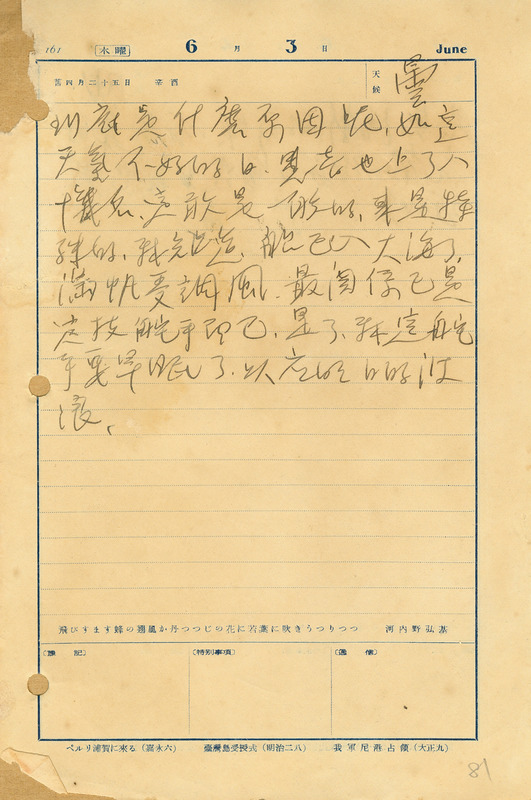 161 木曜 6月 3日 June
旧四月二十五日 辛酉 天候 曇
到底是什麼原因呢,如這
天氣不好的日,患者也上了八
十幾名,這敢是一般的,更是特
殊的,我知道,船已入大海了,
滿帆受調風,最関係已是
這枝舵手即已,是了,我這舵
手要早眠了,以应明日的波
浪、
飛びすます蜂の翅風か丹つつじの花に若葉に吹きうつりつつ 河内野弘基
〔課記〕 〔特別事項〕 〔通信〕
ペルリ浦賀に來る(嘉永六) 臺灣島受授式(明治二八) 我軍尼港占領(大正九)
81